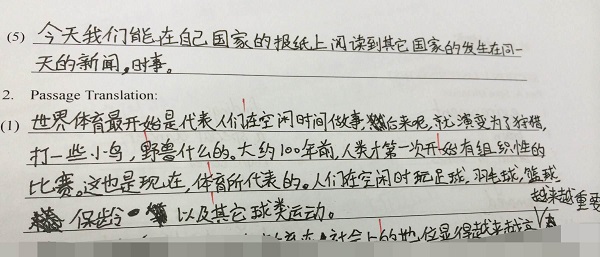 (5) 今天我们能在自己国家的报纸上阅读到其它国家的发生在同一
天的新闻,时事。
2. Passage Translation:
(1) 世界体育最开始是代表人们在空闲时间做事,后来呢,就演变为了狩猎,
打一些小鸟,野兽什么的。大约100年前,人类才第一次开始有组织性的
比赛。这也是现在,体育所代表的。人们在空闲时玩足球,羽毛球,篮球
越来越重要
保龄 以及其它球类运动。
社会上的地位显得越来越